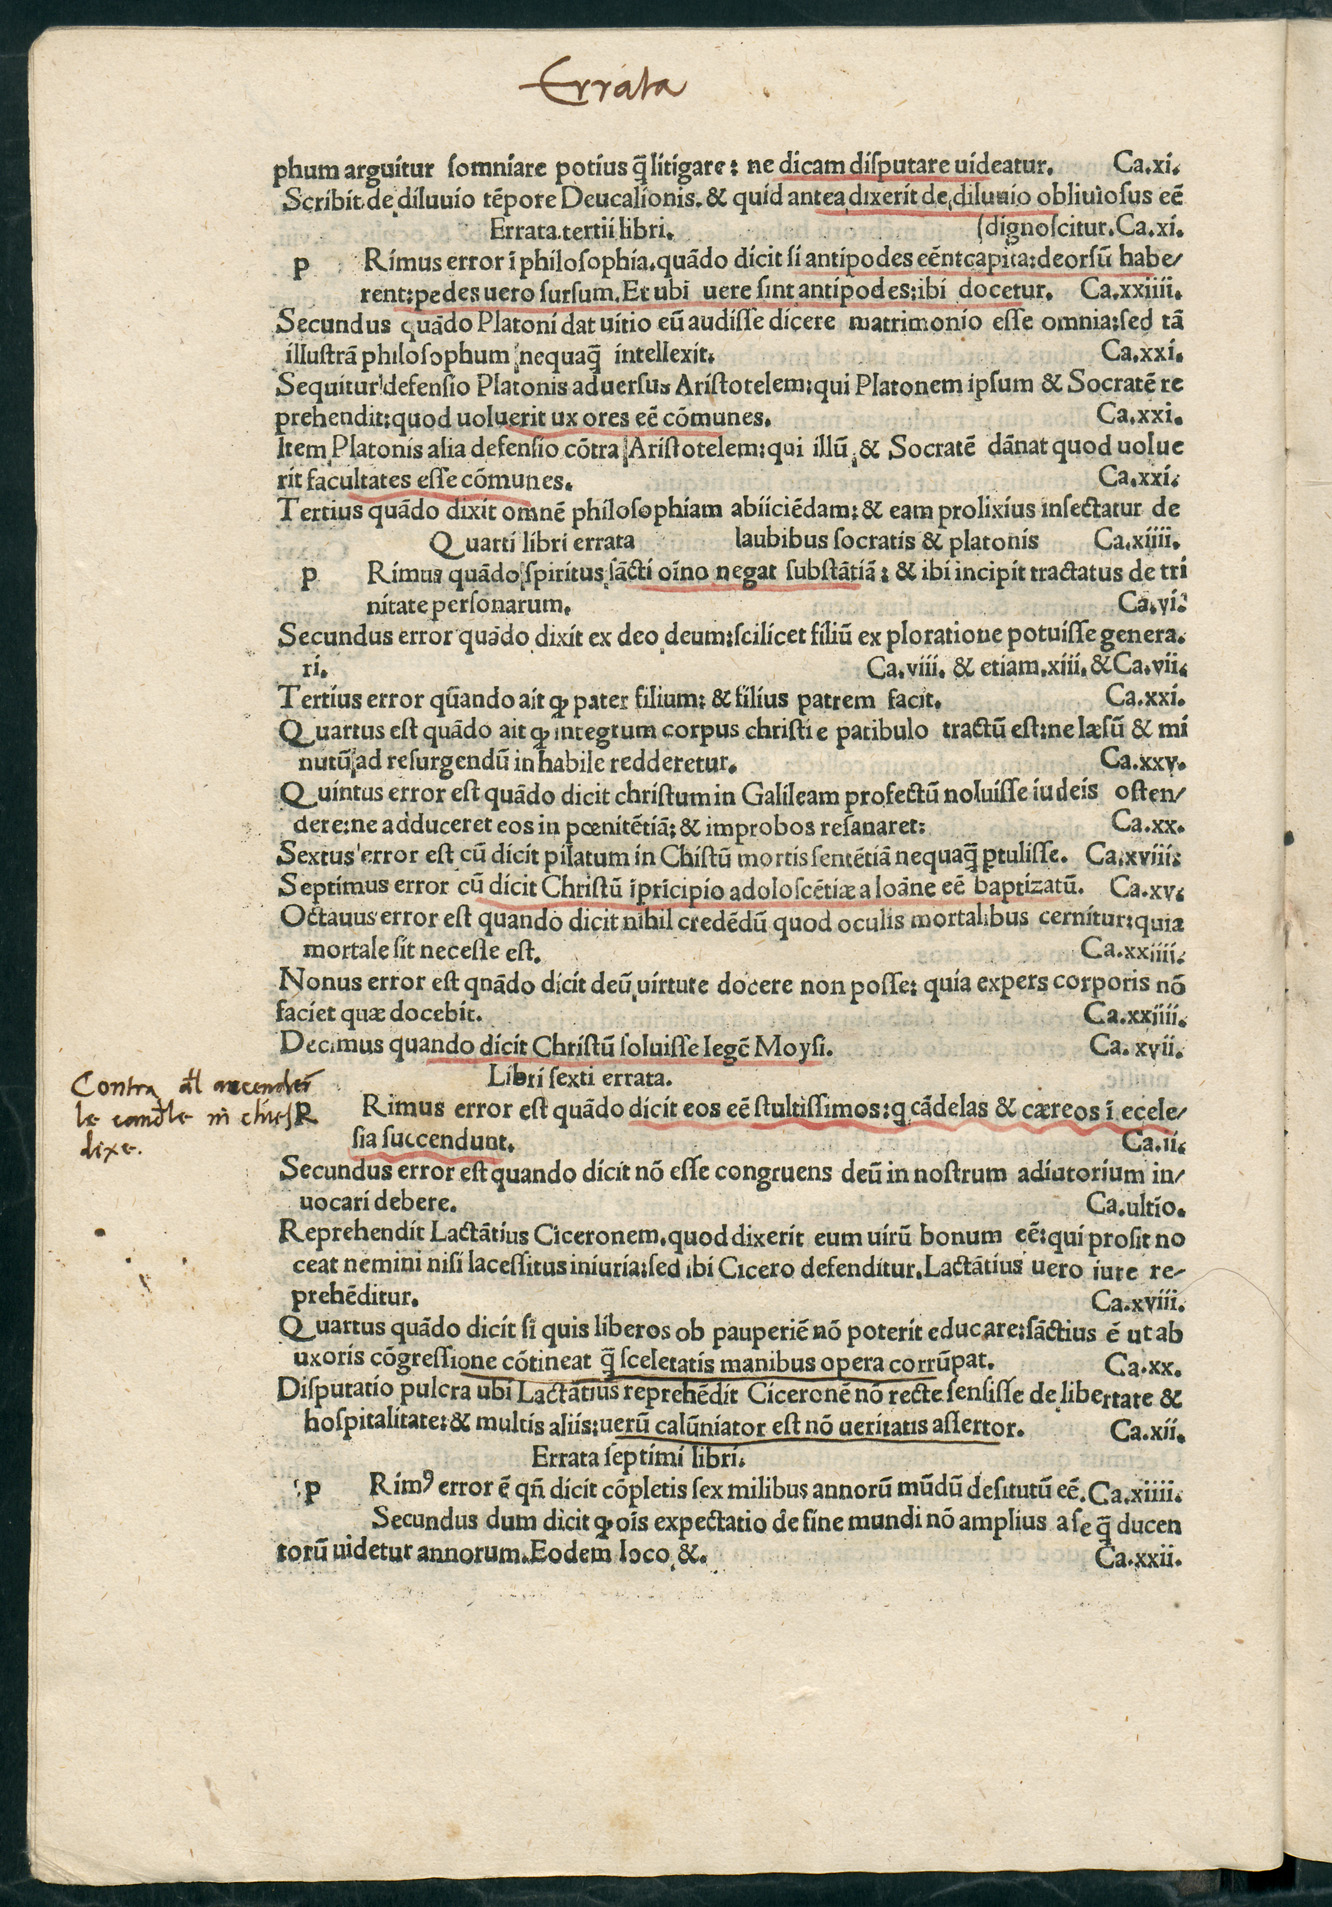 Errata
phum arguitur ſomniare potius q̄ litigare: ne dicam diſputare uideatur. Ca.xi.
Scribit de diluuio tēpore Deucalionis. & quid antea dixerit de diluuio obliuioſus eē
Errata tertii libri. (dignoſcitur. Ca.xi.
p Rimus error ī philoſophia. quādo dicit ſi antipodes eēnt capita: deorſū habe/
rent: pedes uero ſurſum. Et ubi uere ſint antipodes: ibi docetur. Ca.xxiiii.
Secundus quādo Platoni dat uitio eū audiſſe dicere matrimonio eſſe omnia: ſed tā
illuſtrā philoſophum nequaq̄ intellexit. Ca.xxi.
Sequitur defenſio Platonis aduerſus Ariſtotelem: qui Platonem ipſum & Socratē re
prehendit: quod uoluerit ux ores eē cōmunes. Ca.xxi.
Item Platonis alia defenſio cōtra Ariſtotelem: qui illū & Socratē dānat quod uolue
rit facultates eſſe cōmunes. Ca.xxi.
Tertius quādo dixit omnē philoſophiam abiiciēdam: & eam prolixius inſectatur de
Quarti libri errata laubibus ſocratis & platonis Ca.xiiii.
p Rimus quādo ſpiritus ſācti oīno negat ſubſtātiā: & ibi incipit tractatus de tri
nitate perſonarum. Ca.vi.
Secundus error quādo dixit ex deo deum: ſcilicet filiū ex ploratione potuiſſe genera.
ri. Ca.viii. & etiam.xiii. & Ca.vii.
Tertius error qūando ait ꝙ pater filium: & filius patrem facit. Ca.xxi.
Quartus eſt quādo ait ꝙ integrum corpus chriſti e patibulo tractū eſt: ne læſū & mi
nutū ad reſurgendū in habile redderetur. Ca.xxv.
Quintus error eſt quādo dicit chriſtum in Galileam profectū noluiſſe iudeis oſten/
dere: ne adduceret eos in pœnitētiā: & improbos reſanaret: Ca.xx.
Sextus error eſt cū dicit pilatum in Chiſtū mortis ſentētiā nequaq̄ ꝓtuliſſe. Ca.xviii.
Septimus error cū dicit Chriſtū ī pricipio adoloſcētiæ a Ioāne eē baptizatū. Ca.xv.
Octauus error eſt quando dicit nihil credēdū quod oculis mortalibus cernitur: quia
mortale ſit neceſſe eſt. Ca.xxiiii.
Nonus error eſt qnādo dicit deū uirtute docere non poſſe: quia expers corporis nō
faciet quæ docebit. Ca.xxiiii.
Decimus quando dicit Chriſtū ſoluiſſe legē Moyſi. Ca. xvii.
Libri ſexti errata.
Contra
le candele
dixe.
R Rimus error eſt quādo dicit eos eē ſtultiſſimos: q cādelas & cæreos ī ecele/
ſia ſuccendunt. Ca.ii.
Secundus error eſt quando dicit nō eſſe congruens deū in noſtrum adiutorium in/
uocari debere. Ca.ultio.
Reprehendit Lactātius Ciceronem. quod dixerit eum uirū bonum eē: qui proſit no
ceat nemini niſi laceſſitus iniuria: ſed ibi Cicero defenditur. Lactātius uero iure re/
prehēditur. Ca.xviii.
Quartus quādo dicit ſi quis liberos ob pauperiē nō poterit educare: ſāctius ē ut ab
uxoris cōgreſſione cōtineat q̄ ſceletatis manibus opera corrūpat. Ca.xx.
Diſputatio pulcra ubi Lactātius reprehēdit Ciceronē nō recte ſenſiſſe de libertate &
hoſpitalitate: & multis aliis: uerū calūniator eſt nō ueritatis aſſertor. Ca.xii.
Errata ſeptimi libri.
p Rimꝰ error ē qn̄ dicit cōpletis ſex milibus annorū mūdū deſitutū eē. Ca.xiiii.
Secundus dum dicit ꝙ oīs expectatio de fine mundi nō amplius a ſe q̄ ducen
torū uidetur annorum. Eodem loco &. Ca.xxii.